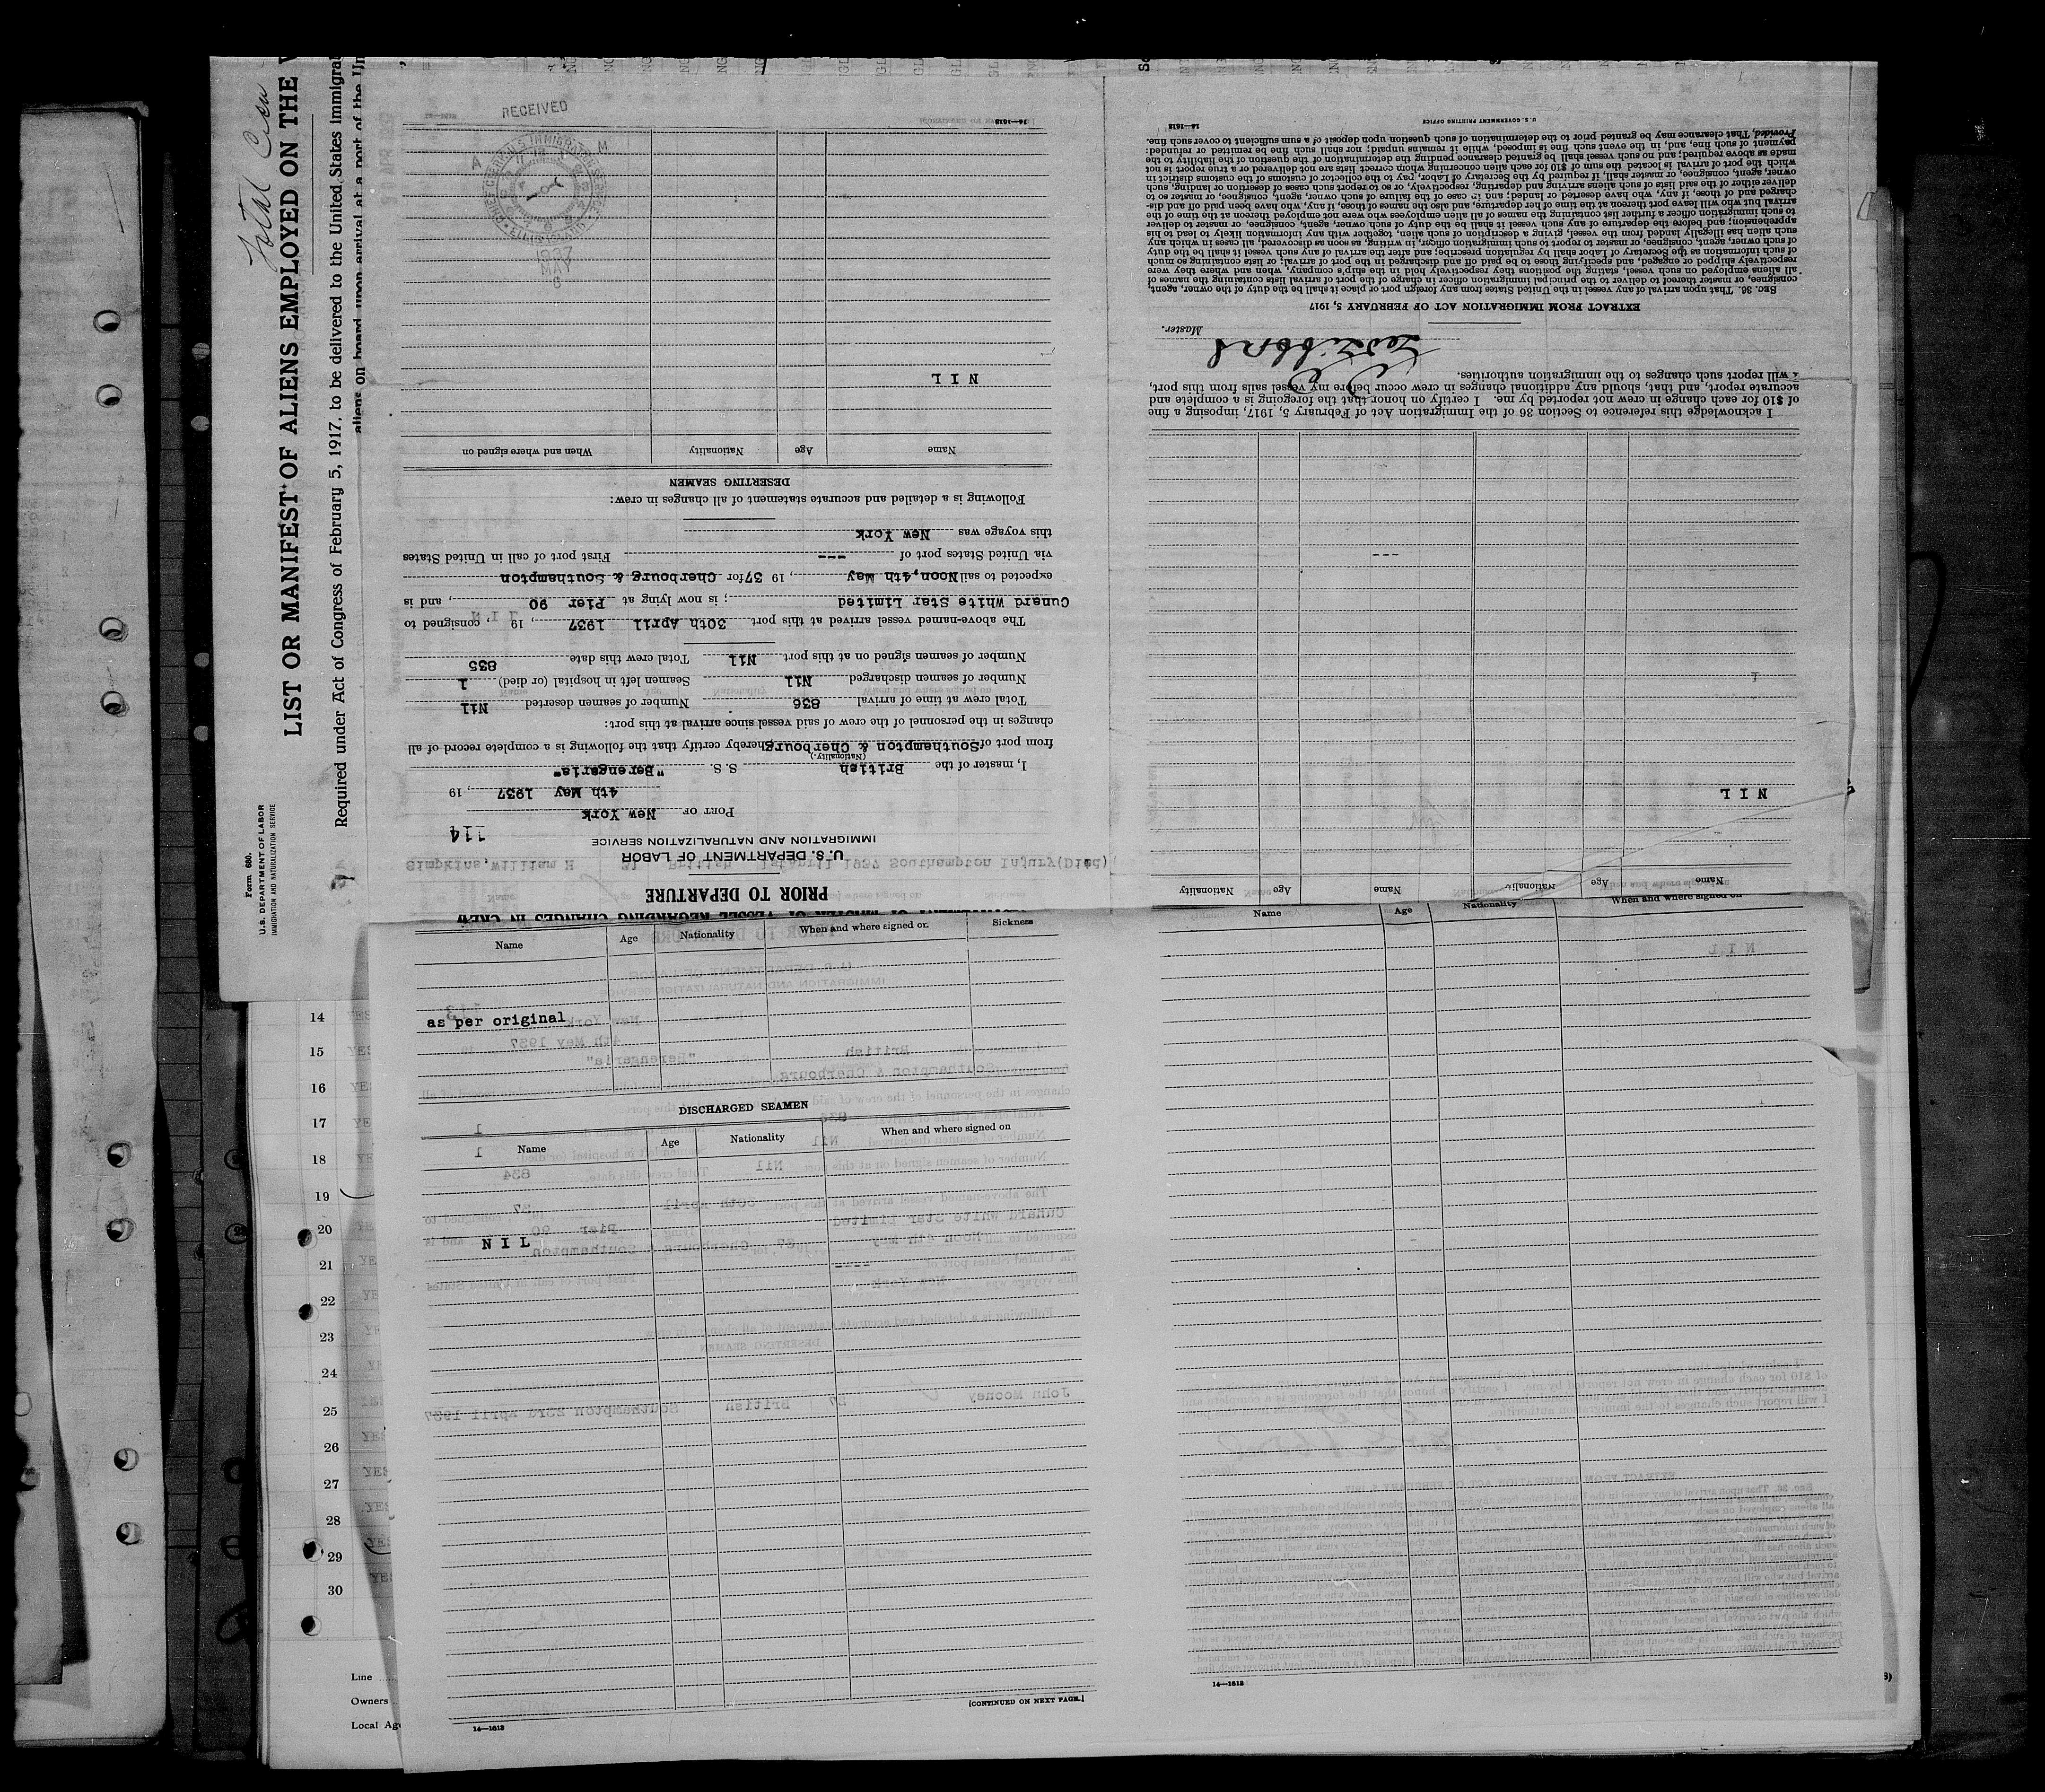 Total Crew
Form 680.
U.S. DEPARTMENT OF LABOR
IMMIGRATION AND NATURALIZATION SERVICE
LIST OR MANIFEST OF ALIENS EMPLOYED ON THE
Required under Act of Congress of February 5, 1917, to be delivered to the United States
aliens on board upon arrival at a port of the
PRIOR TO DEPARTURE
U. S. DEPARTMENT OF LABOR
IMMIGRATION AND NATURALIZATION SERVICE
114
PORT OF New York
4th May 1937, 19
I, master of the British S. S. "Berengaria"
(Nationality)
from port of Southampton & Cherbourg, hereby certify that the following is a complete record of all
changes in the personnel of the crew of said vessel since arrival at this port:
Total crew at time of arrival 836 Number of seamen deserted Nil
Number of seamen discharged Nil Seamen left in hospital (or died) 1
Number of seamen signed on at this port Nil Total crew this date 835
The above-named vessel arrived at this port 30th April 1937, 19, consigned to
Cunard White Star Limited; is now lying at Pier 90, and is
expected to sail Noon, 4th May, 19 37 for Cherbourg & Southampton
via United States port of --- First port of call in United States
this voyage was New York
Following is a detailed and accurate statement of all changes in crew:
DESERTING SEAMEN
Name Age Nationality When and where signed on
NIL
RECEIVED
CHIEF CLERK U.S. IMMIGRATION SERVICE ELLIS ISLAND
1937
MAY
6
A M
14—1613
Simpkins, William H British 1st April 1937 Southampton Injury(Died)
Name Age Nationality Name Age Nationality
NIL
---
I acknowledge this reference to Section 36 of the Immigration Act of February 5, 1917, imposing a fine
of $10 for each change in crew not reported by me. I certify on honor that the foregoing is a complete and
accurate report, and that, should any additional changes in crew occur before my vessel sails from this port,
I will report such changes to the immigration authorities.
Master.
EXTRACT FROM IMMIGRATION ACT OF FEBRUARY 5, 1917
SEC. 36. That upon arrival of any vessel in the United States from any foreign port or place it shall be the duty of the owner, agent,
consignee, or master thereof to deliver to the principal immigration officer in charge of the port of arrival lists containing the names of
all aliens employed on such vessel, stating the positions they respectively hold in the ship's company, when and where they were
respectively shipped or engaged, and specifying those to be paid off and discharged in the port of arrival; or lists containing so much
of such information as the Secretary of Labor shall by regulation prescribe; and after the arrival of any such vessel it shall be the duty
of such owner, agent, consignee, or master to report to such immigration officer, in writing, as soon as discovered, all cases in which any
such alien has illegally landed from the vessel, giving a description of such alien, together with any information likely to lead to his
apprehension; and before the departure of any such vessel it shall be the duty of such owner, agent, consignee, or master to deliver
to such immigration officer a further list containing the names of all alien employees who were not employed thereon at the time of the
arrival but who will leave port thereon at the time of her departure, and also the names of those, if any, who have been paid off and dis-
charged and of those, if any, who have deserted or landed; and in case of the failure of such owner, agent, consignee, or master so to
deliver either of the said lists of such aliens arriving and departing, respectively, or so to report such cases of desertion or landing, such
owner, agent, consignee, or master shall, if required by the Secretary of Labor, pay to the collector of customs of the customs district in
which the port of arrival is located the sum of $10 for each alien concerning whom correct lists are not delivered or a true report is not
made as above required; and no such vessel shall be granted clearance pending the determination of the question of the liability to the
payment of such fine, and, in the event such fine is imposed, while it remains unpaid; nor shall such fine be remitted or refunded:
Provided, That clearance may be granted prior to the determination of such question upon deposit of a sum sufficient to cover such fine.
U. S. GOVERNMENT PRINTING OFFICE
14—1613
Name Age Nationality When and where signed on Sickness
as per original
DISCHARGED SEAMEN
Name Age Nationality When and where signed on
NIL
[CONTINUED ON NEXT PAGE.]
14—1613
Name Age Nationality When and where signed on
14—1613
14
15
16
17
18
19
20
21
22
23
24
25
26
27
28
29
30
Line
Owners
Local